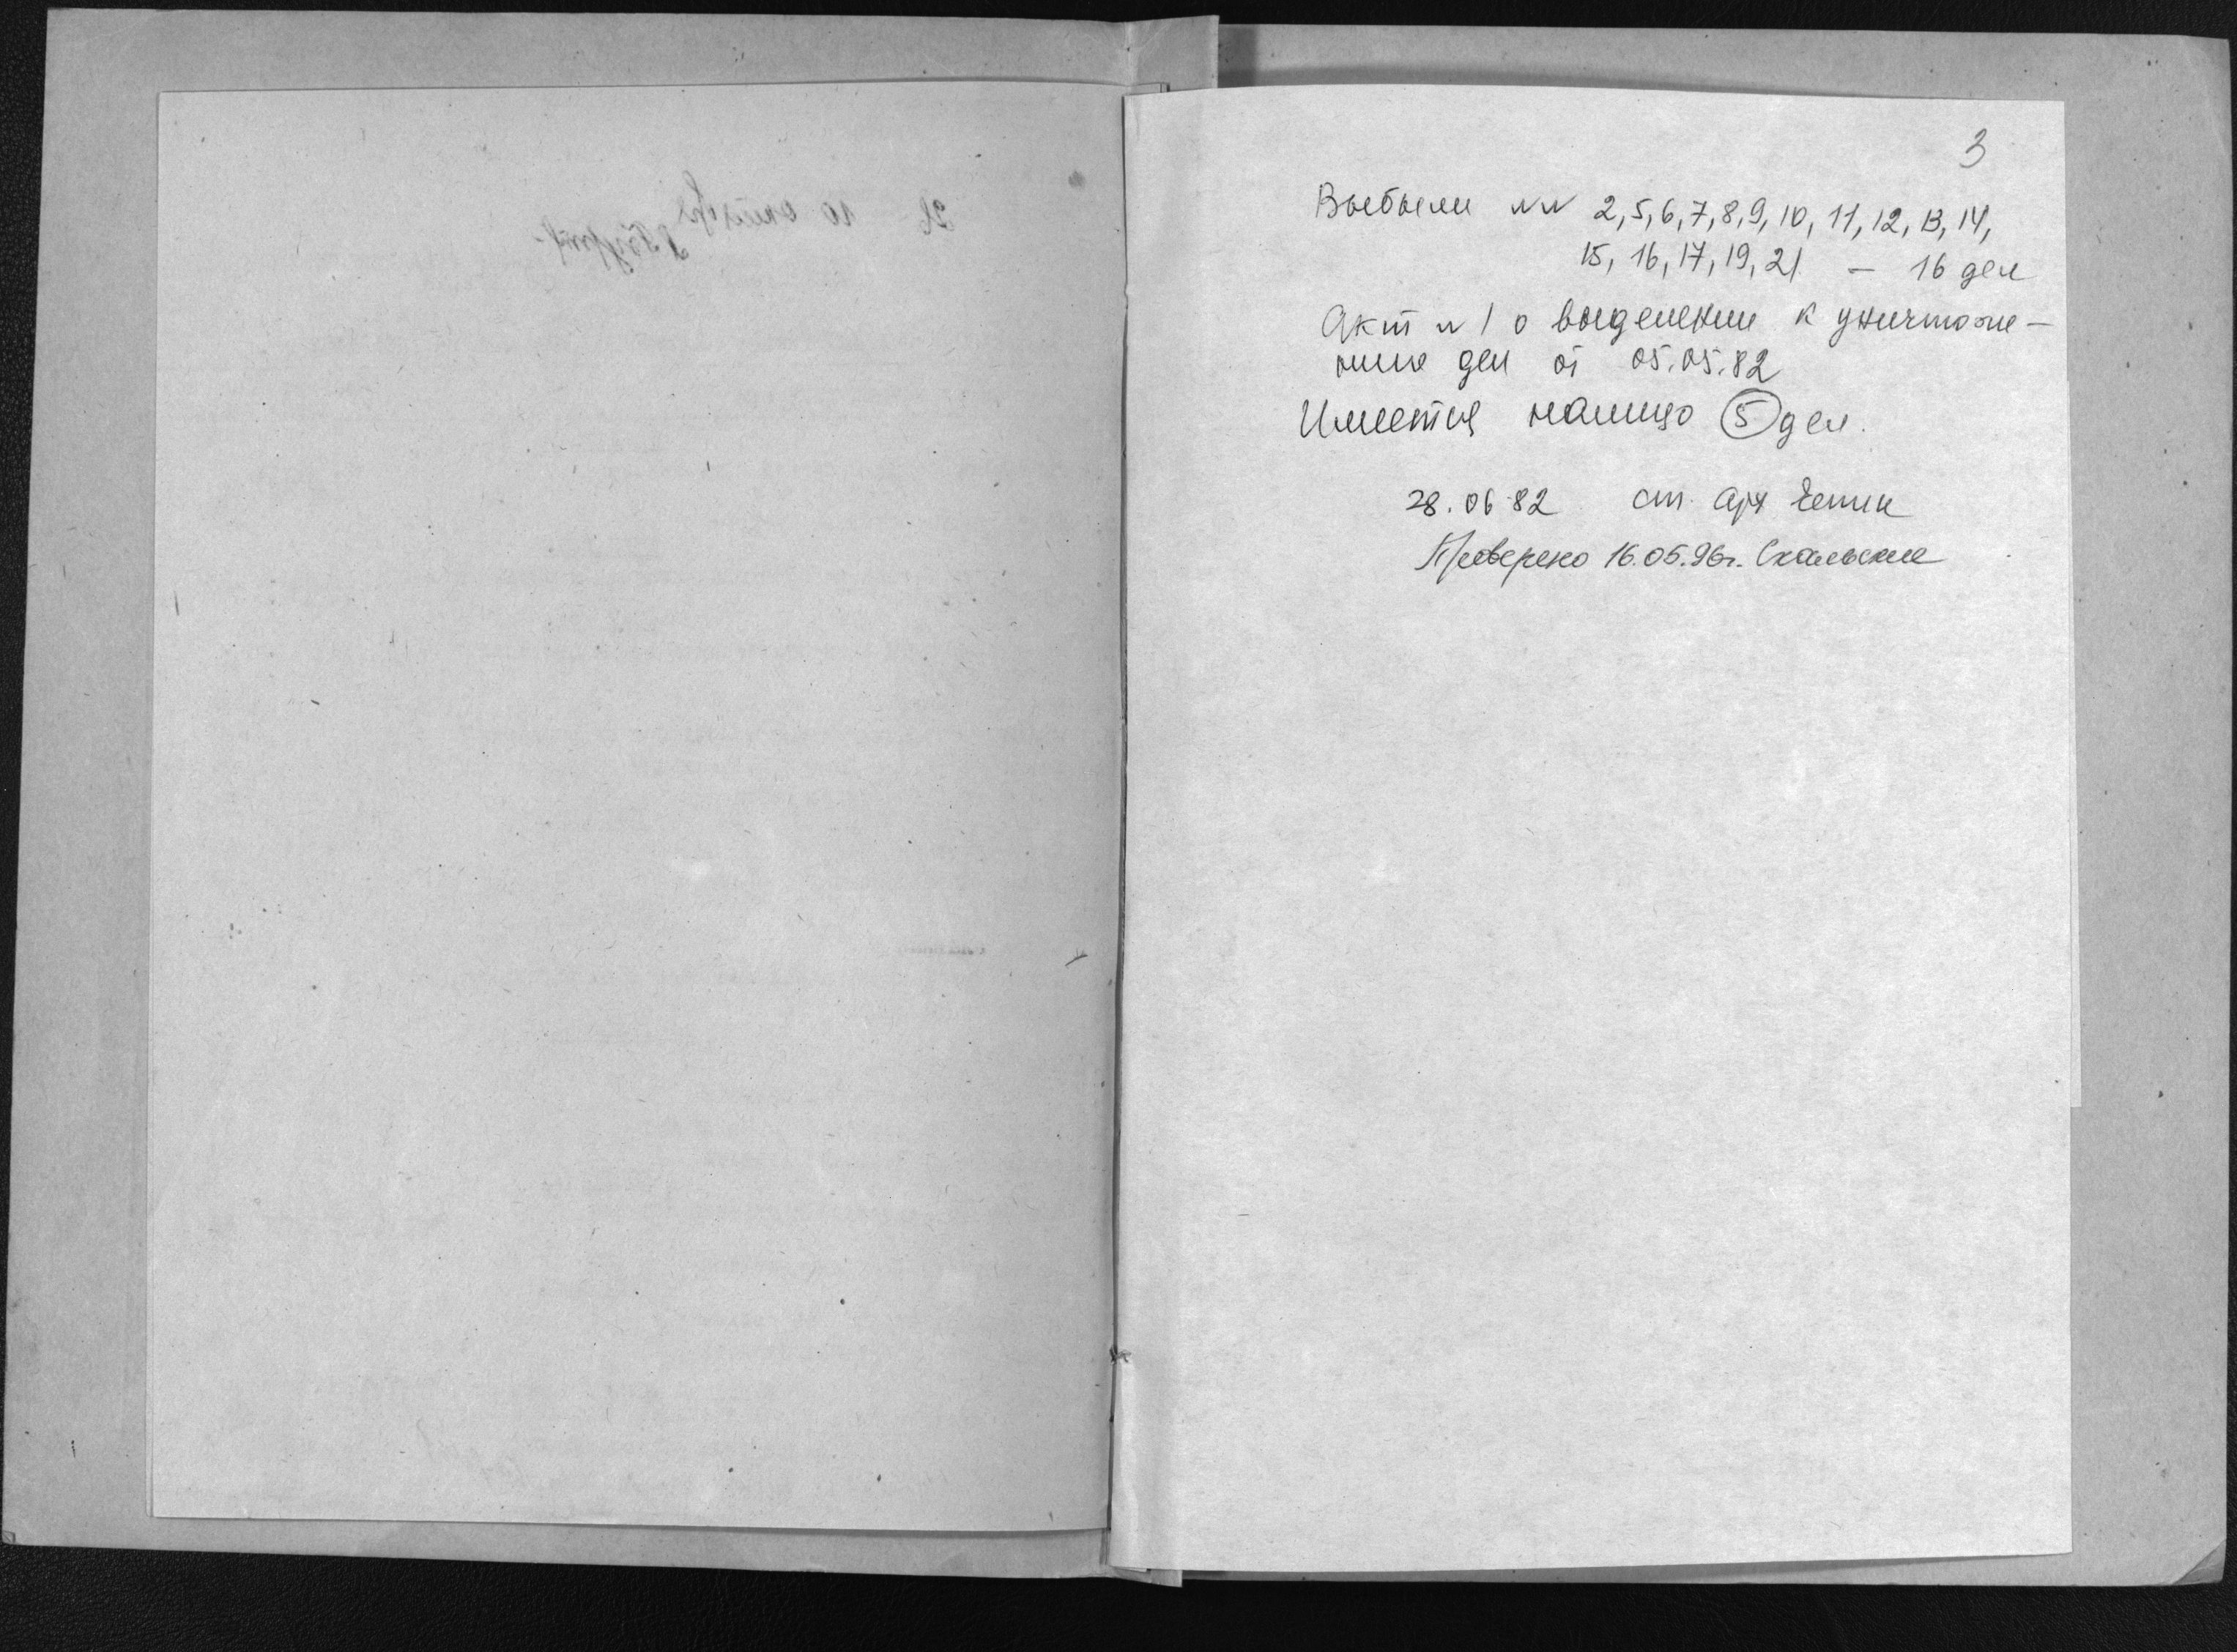 3
Выбыли NN 2,5,6,7,8,9,10,11,12,13,14,
15,16,17,19,21 — 16 дел
Акт N 1 о выделении к уничтоже-
нию дел от 05.05.82
Имеется налицо 5 дел.
28.06.82 ст. арх
Проверено 16.05.96г.